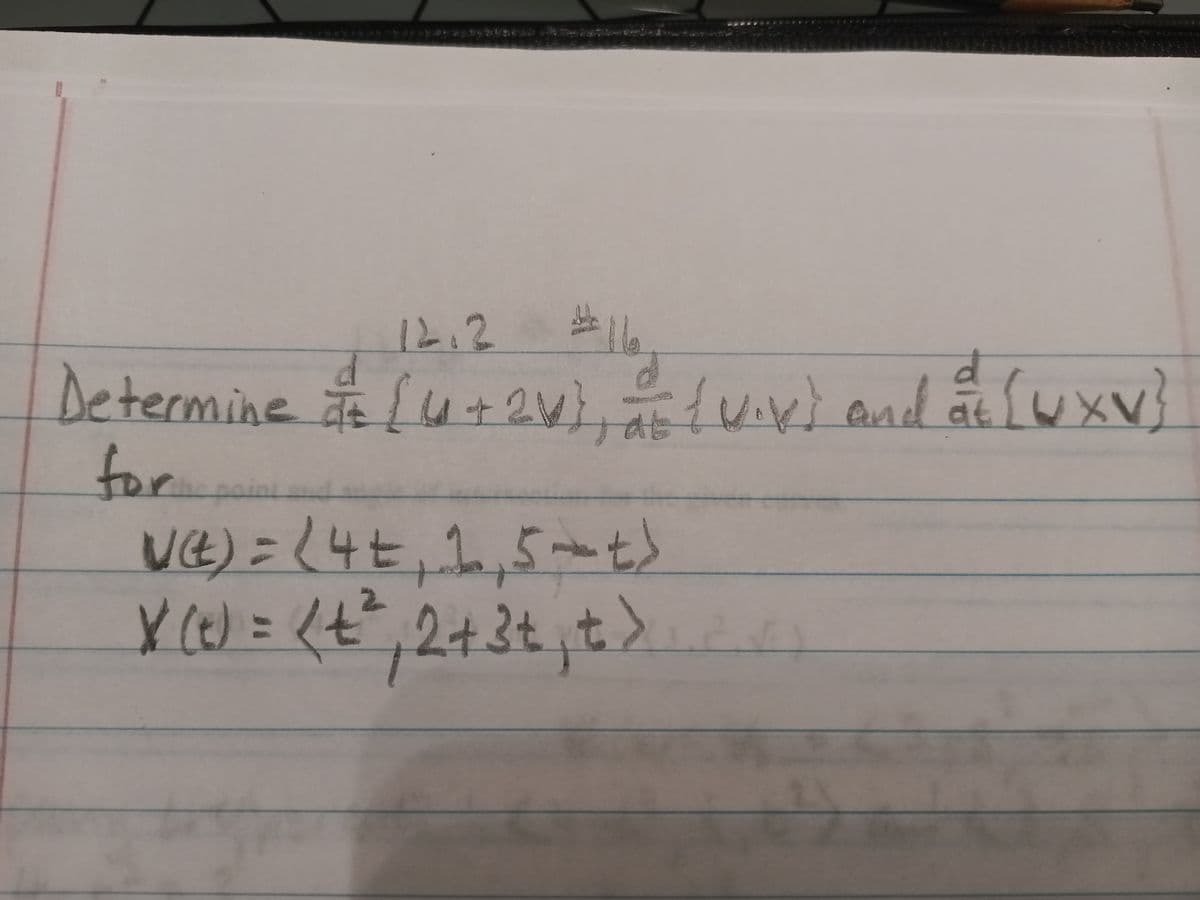 12.2 #16
Determine d/dt {u+2v}, d/dt {u·v} and d/dt {u×v}
for
U(t) = ⟨4t, 1, 5-t⟩
V(t) = ⟨t², 2+3t, t⟩